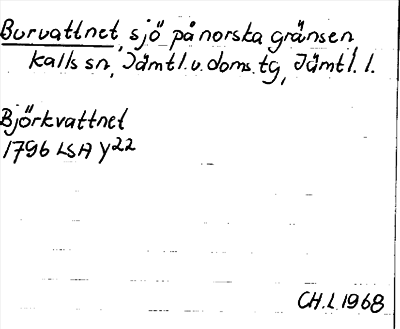 Burvattnet, sjö på norska gränsen,
Kalls sn, Jämtl.v.doms.tg, Jämtl.l.
Björkvattnet
1796 LSA Y22
CH.L.1968